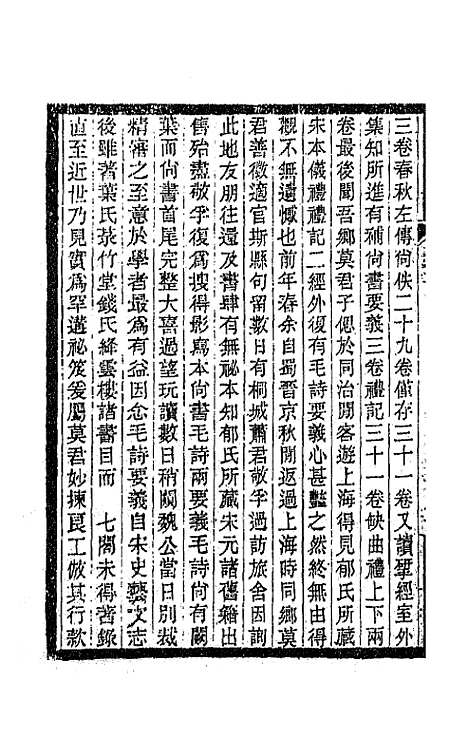 三卷春秋左傳尙佚二十九卷僅存三十一卷又讀揅經室外
集知所進有補尙書要義三卷禮記三十一卷缺曲禮上下兩
卷最後聞吾鄉莫君子偲於同治間客遊上海得見郁氏所藏
宋本儀禮禮記二經外復有毛詩要義心甚豔之然終無由得
觀不無遺憾也前年春余自蜀晉京秋間返過上海時同鄉莫
君善徵適官斯縣句留數日有桐城蕭君敬孚過訪旅舍因詢
此地友朋往還及書肆有無祕本知郁氏所藏宋元諸舊籍出
售殆盡敬孚復爲搜得影寫本尙書毛詩兩要義毛詩尙有闕
葉而尙書首尾完整大喜過望玩讀數日稍闚魏公當日別裁
精審之至意於學者最爲有益因念毛詩要義自宋史藝文志
後雖著葉氏菉竹堂錢氏絳雲樓諸書目而　七閣未得著錄
直至近世乃見實爲罕遘祕笈爰屬莫君妙揀良工倣其行款